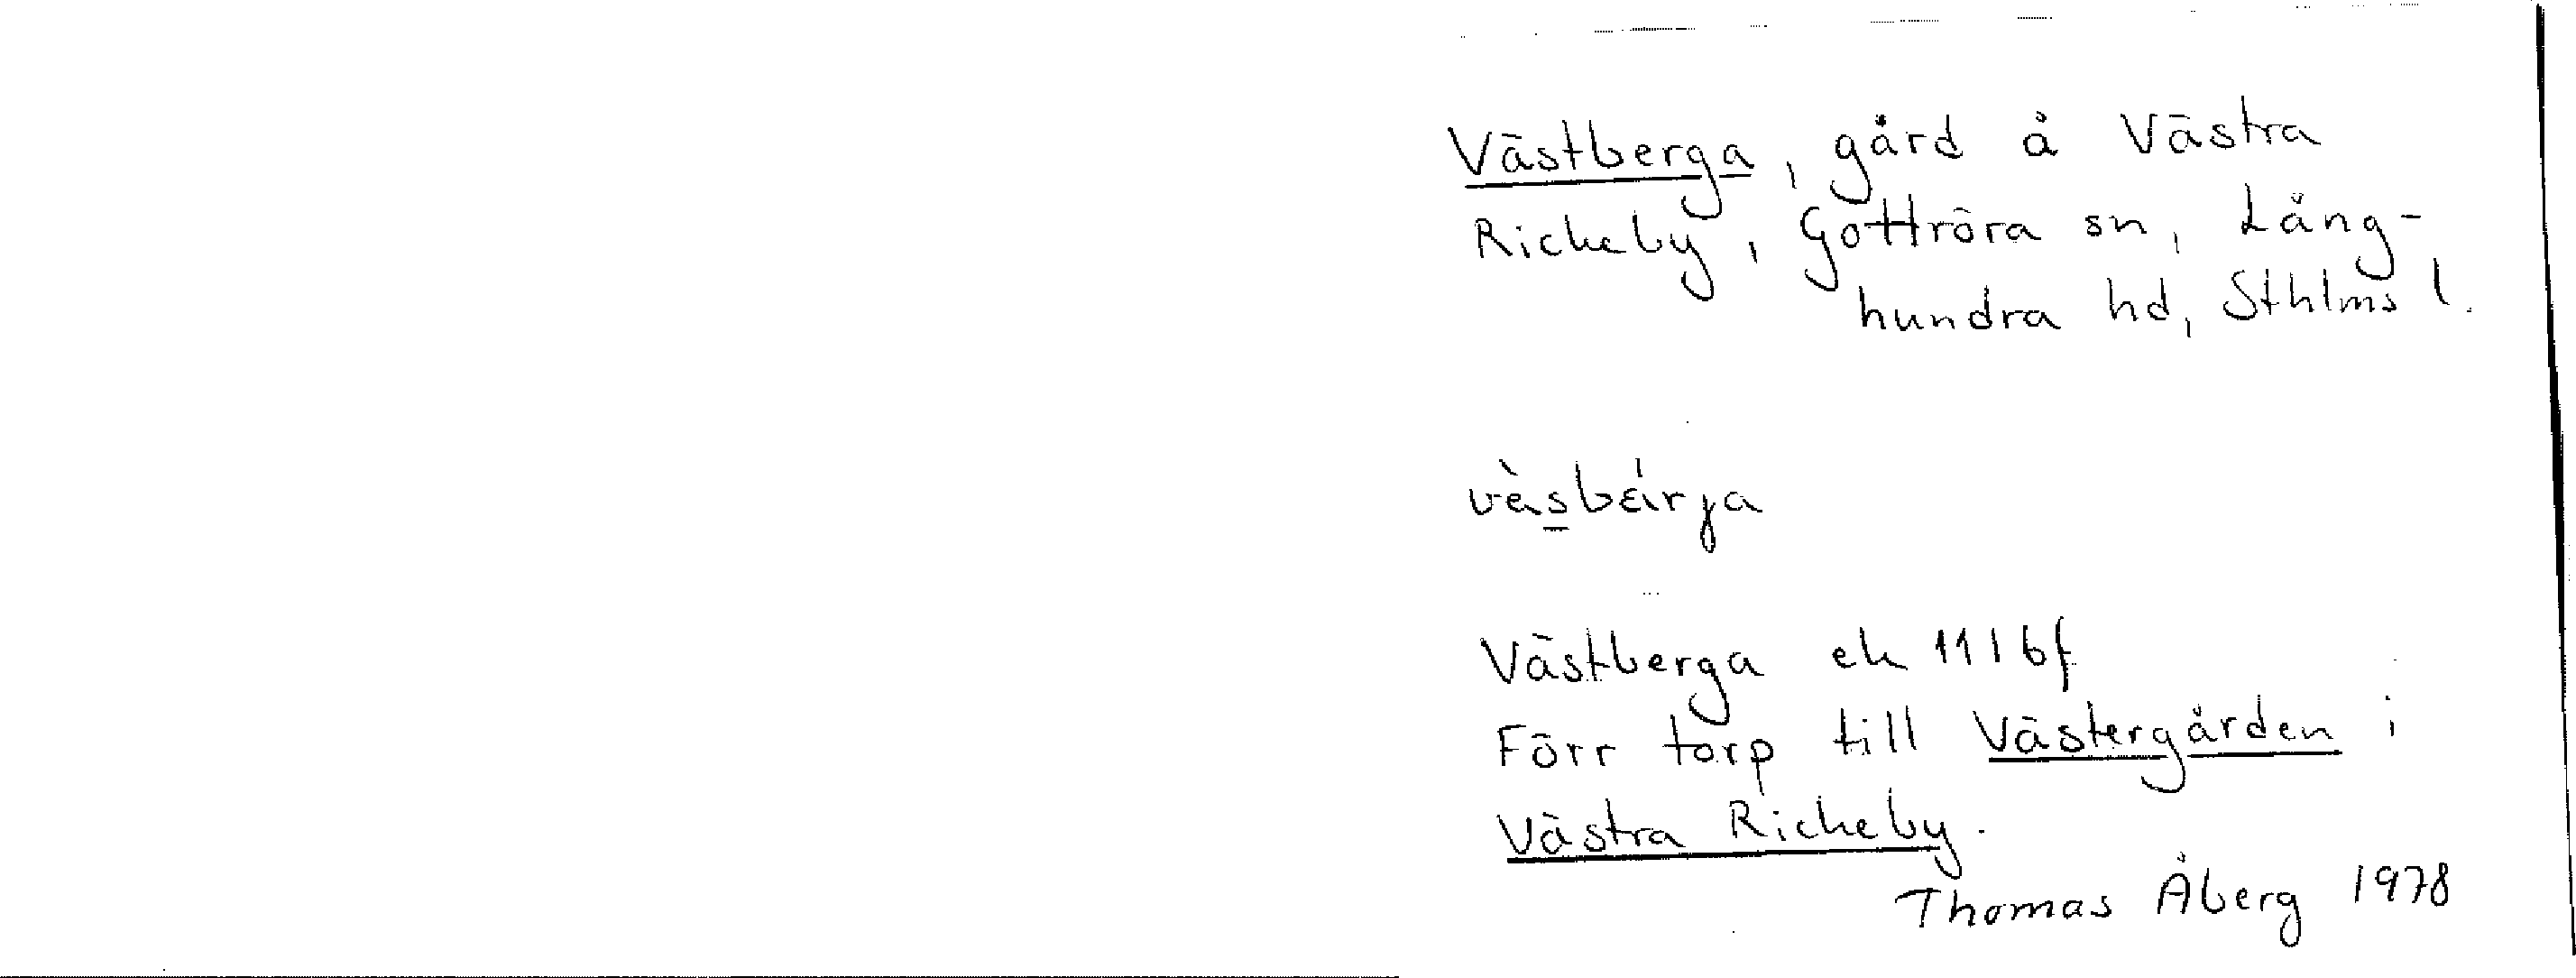 Västberga, gård å Västra
Rickeby, Gottröra sn, Lång-
hundra hd, Sthlms l.
vèsbɛ́rja
Västberga ek 11I6f
Förr torp till Västergården i
Västra Rickeby.
Thomas Åberg 1978